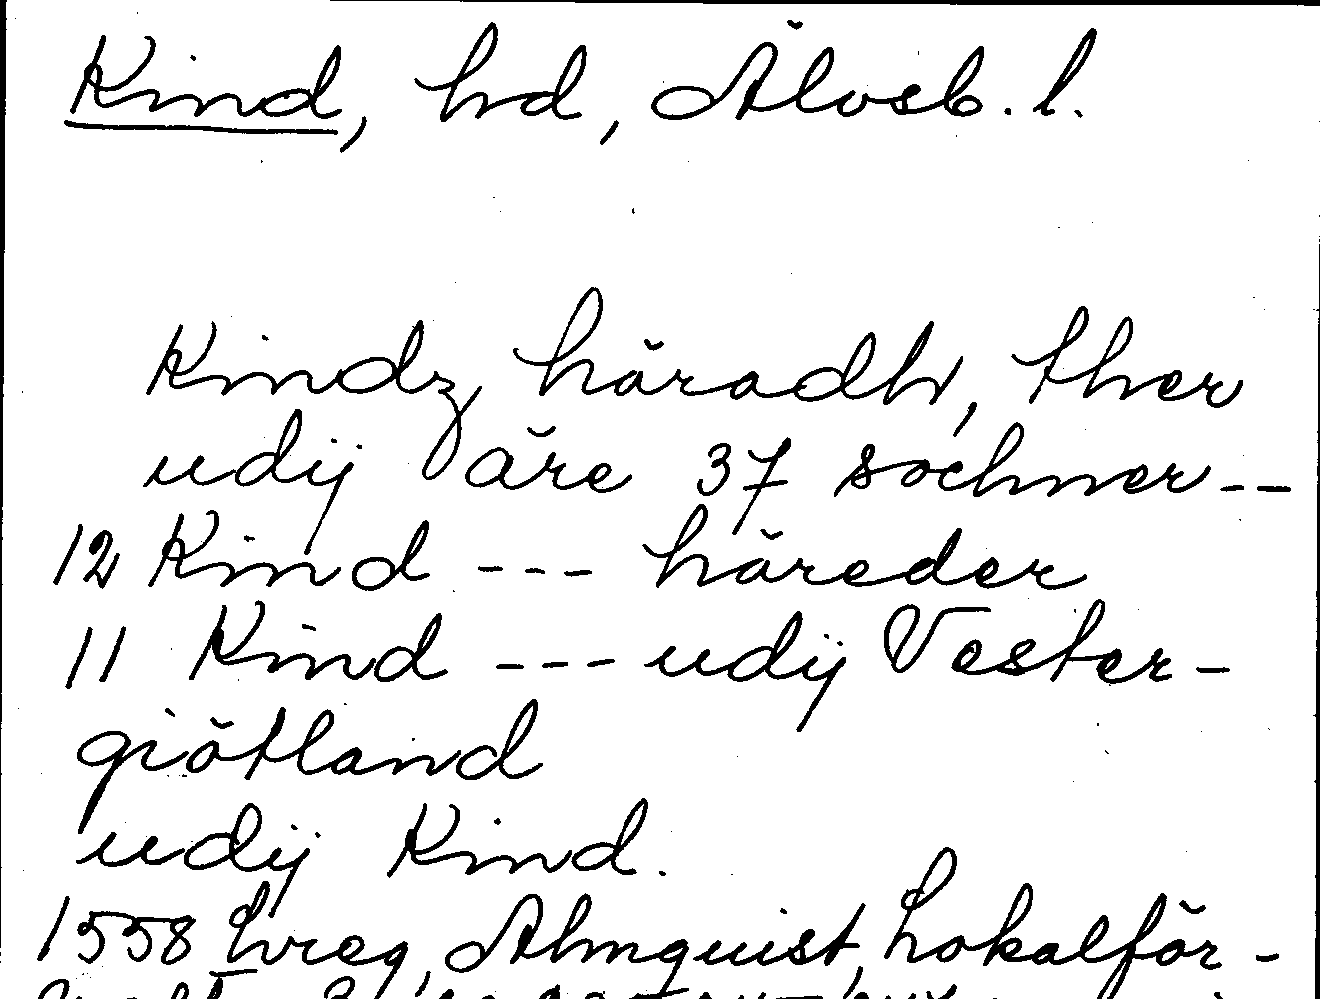 Kind, hd, Älvsb. l.
Kindz häradh, ther
udij äre 37 sochner--
12 Kind --- häreder
11 Kind --- udij Vester-
giötland
udij Kind.
1558 hreg, Almquist, Lokalför-